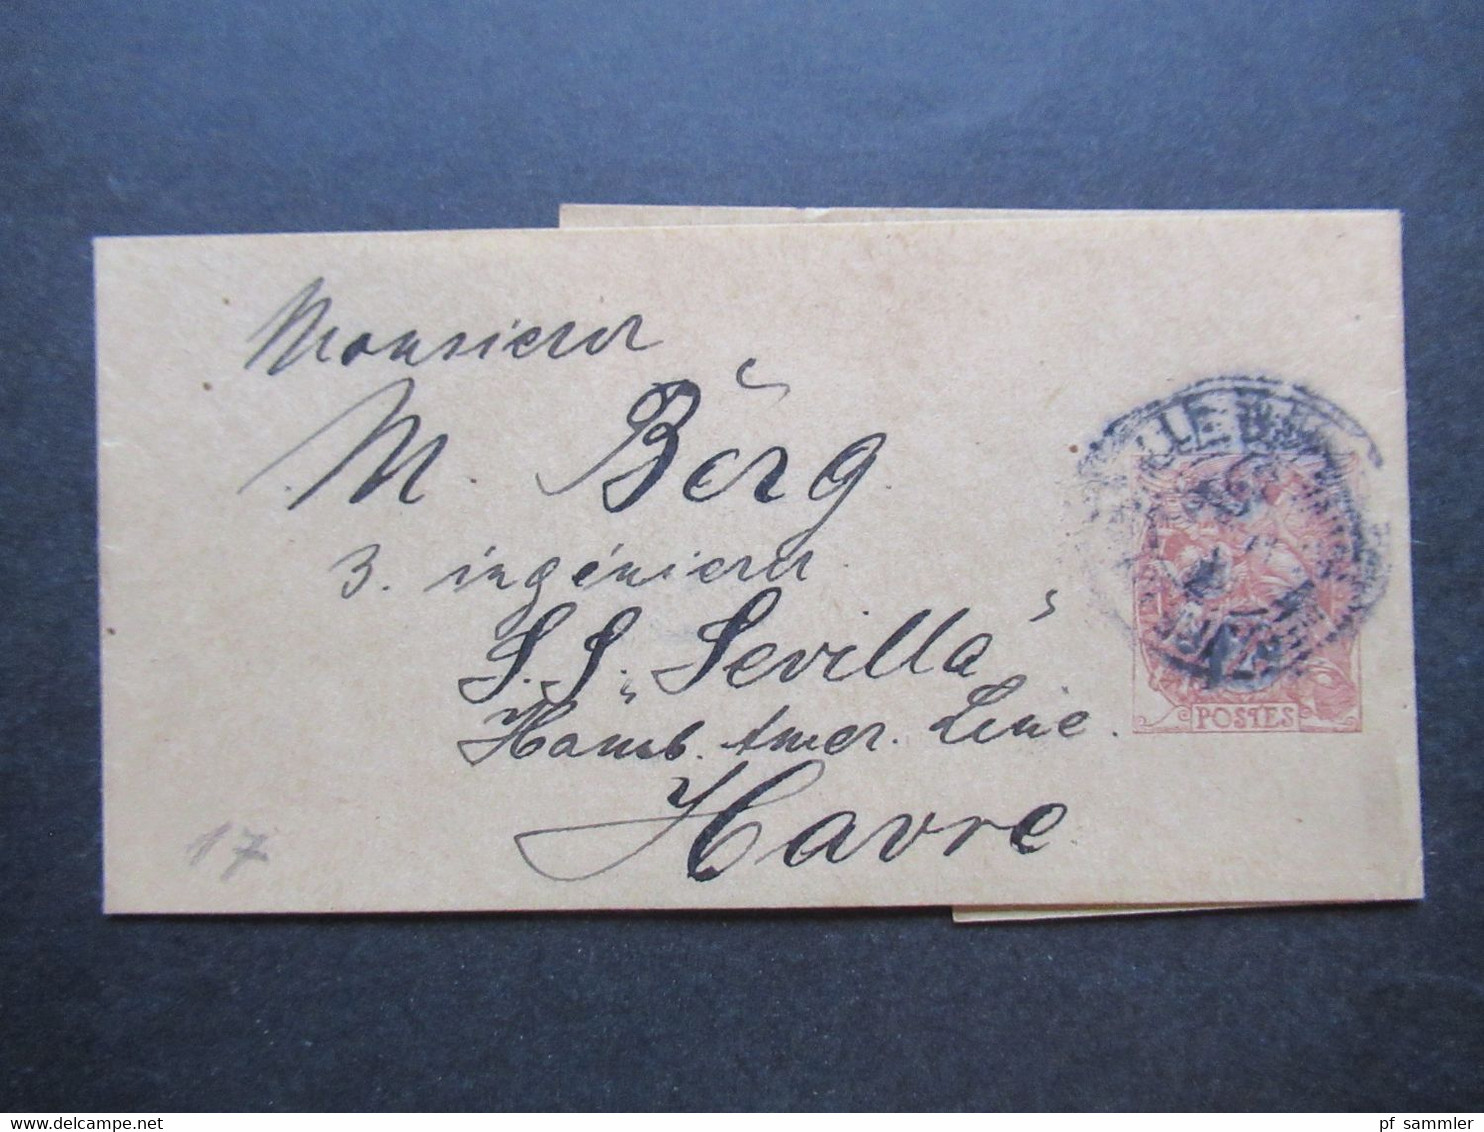 Monsieur
M. Berg
3. ingénieur
S.S. „Sevilla"
Hamb. Amer. Linie.
Havre
17
POSTES
www.delcampe.net
pf_sammler